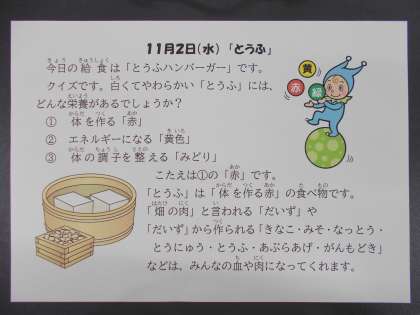 11月2日(水)「とうふ」
今日の給食は「とうふハンバーガー」です。
クイズです。白くてやわらかい「とうふ」には、
どんな栄養があるでしょうか？
① 体を作る「赤」
② エネルギーになる「黄色」
③ 体の調子を整える「みどり」
こたえは①の「赤」です。
「とうふ」は「体を作る赤」の食べ物です。
「畑の肉」と言われる「だいず」や
「だいず」から作られる「きなこ・みそ・なっとう・
とうにゅう・とうふ・あぶらあげ・がんもどき」
などは、みんなの血や肉になってくれます。
黄
赤
緑